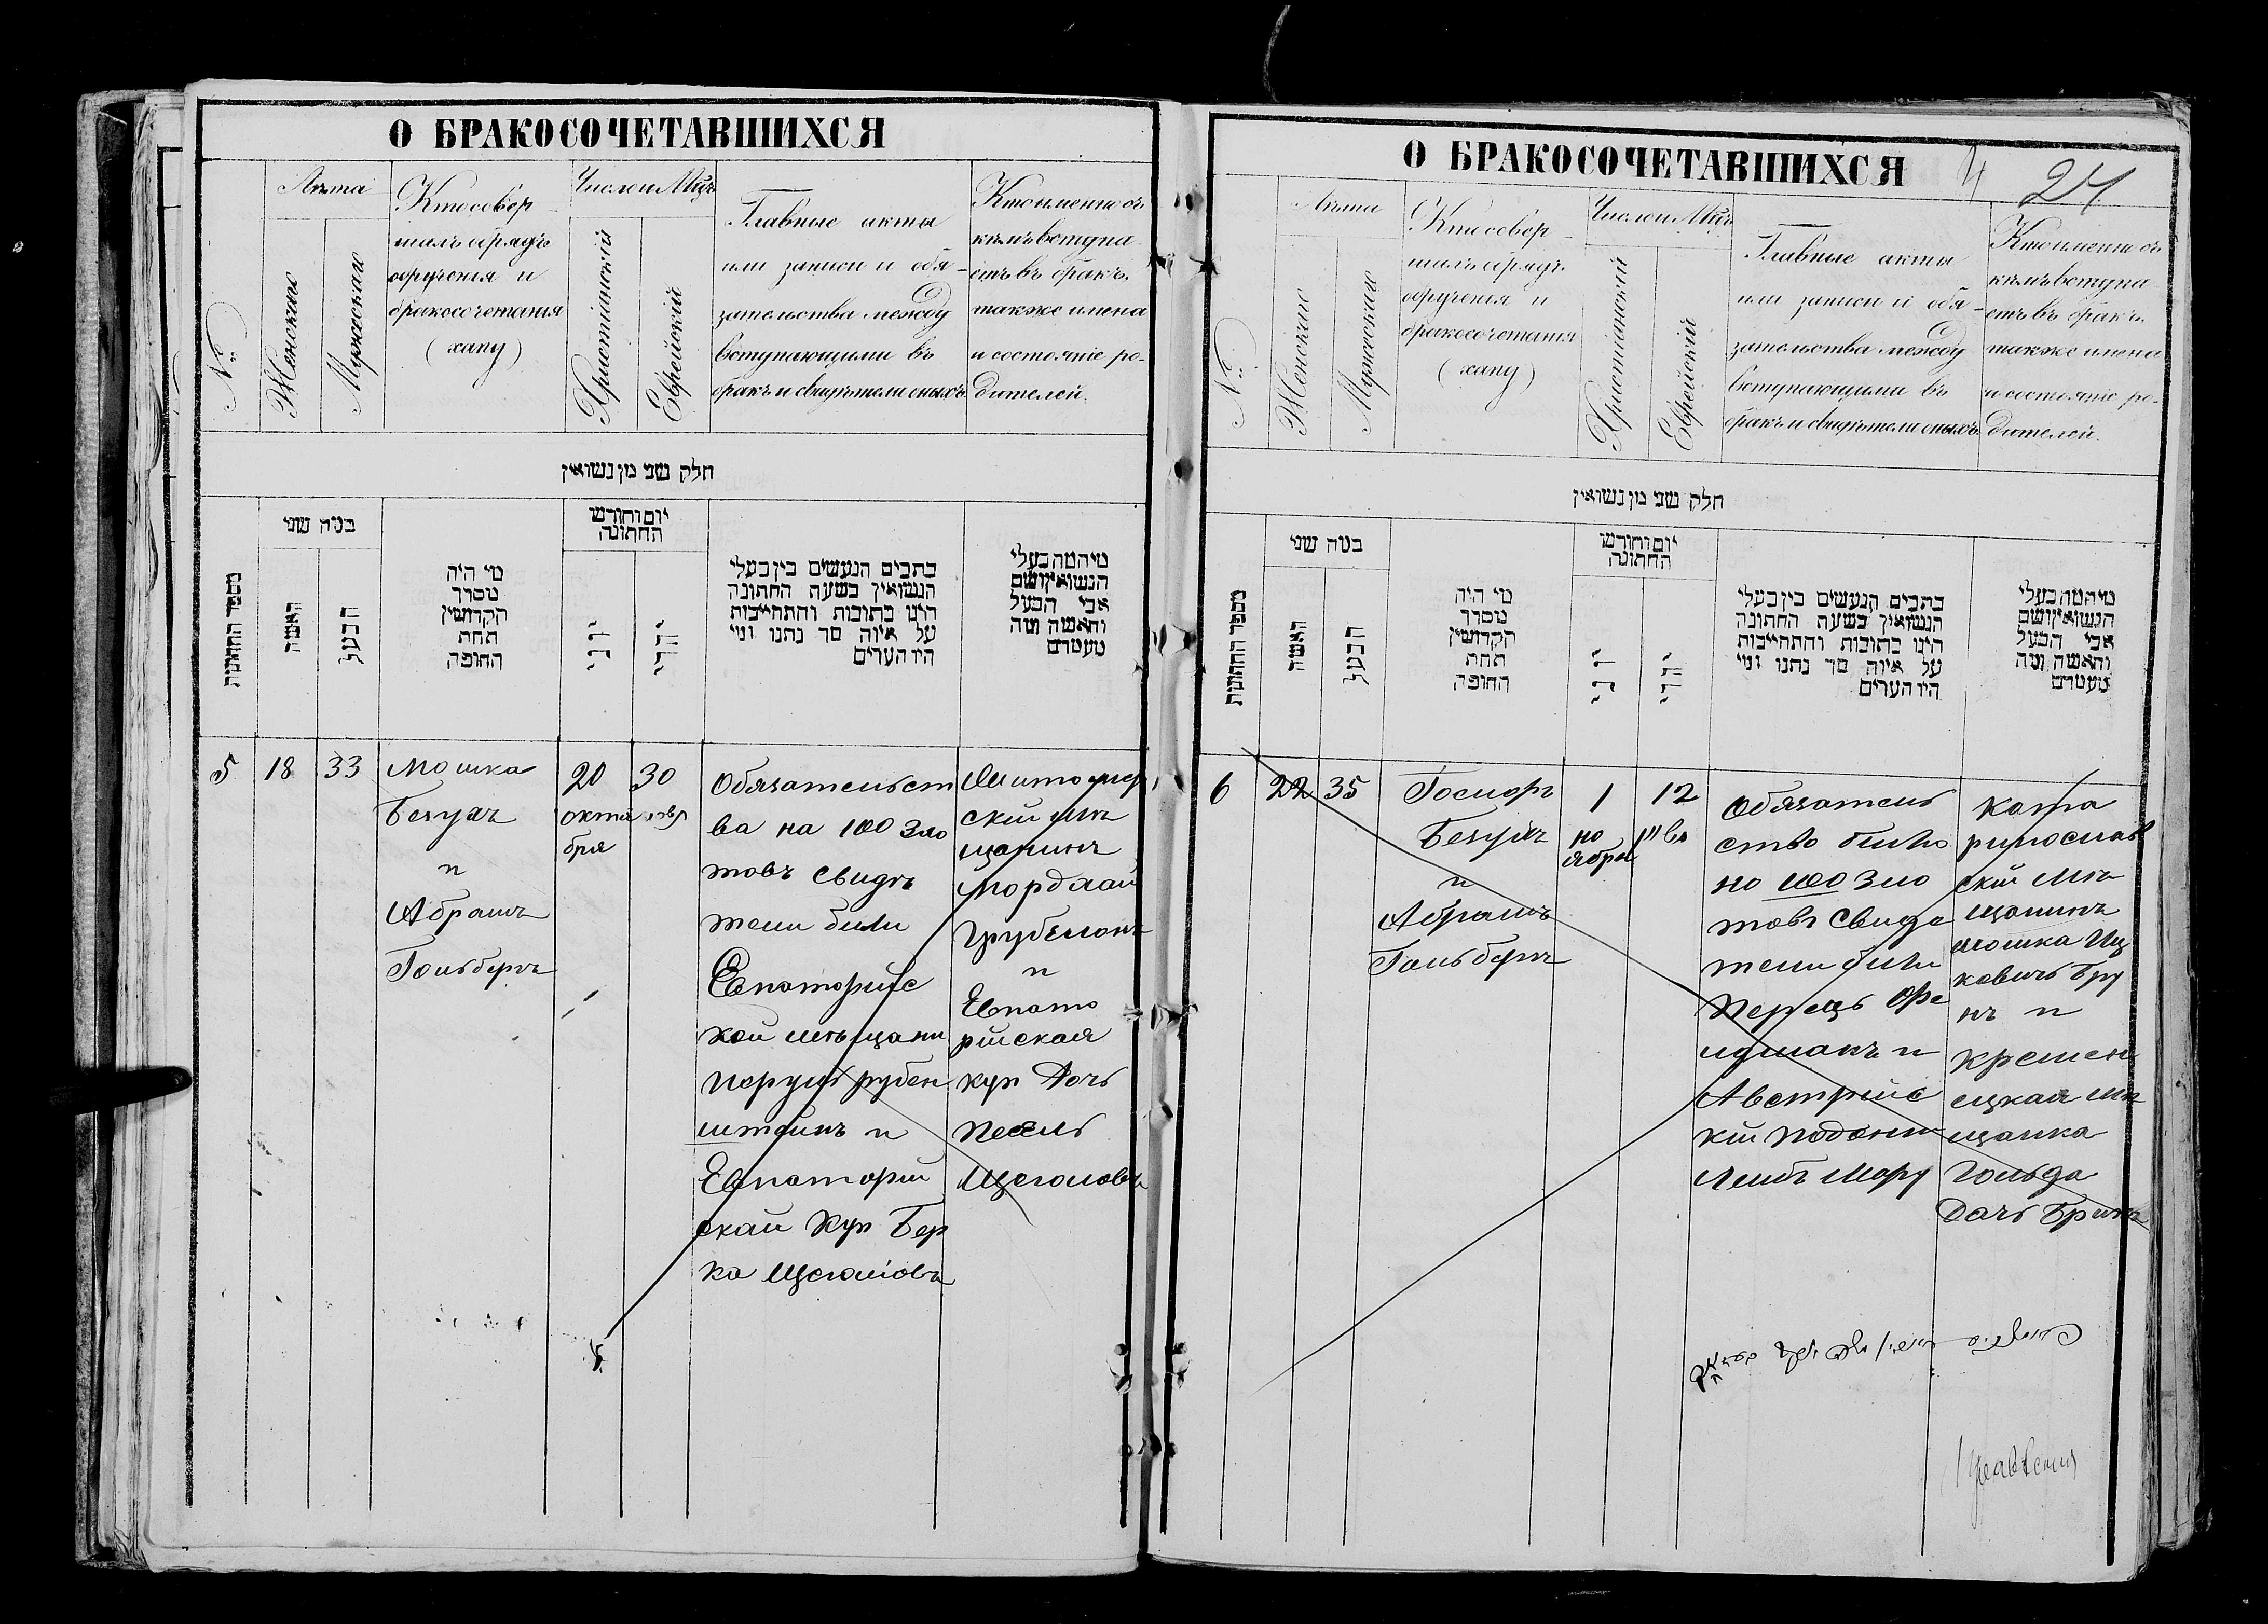 О БРАКОСОЧЕТАВШИХСЯ
№
Лѣта
Женскаго
Мужескаго
Кто совер
шалъ обрядъ
обрученія и
бракосочетанія
(хапу)
Число и Мѣц
Христіанскій
Еврейскій
Главные акты
или записи и обя-
зательства между
вступающими въ
бракъ и свидѣтели оныхъ
Кто именно съ
кѣмъ вступа
етъ въ бракъ
также имена
и состояніе ро-
дителей.
חלק שני מן נשואין
מספר החתונות
במה שני
האשה
הבעל
מי היה
מסדר
הקדושין
תחת
החופה
יום וחודש
החתונה
יוני
יהודי
כתבים הנעשים בין בעלי
הנשואין בשעת החתונה
היינו כתובות והתחייבות
על איזה סך נתנו ומי
היו העדים
מי המה בעלי
הנשואין ושם
אבי הבעל
והאשה ומה
מעמדם
5
18
33
Мошка
Безуач
и
Абрамъ
Гольберъ
20
октя
бря
30
Обязательст
ва на 100 зло
товъ свидѣ
тели били
Евпаторійс
кой мѣщани
рубен
штейнъ и
Евпаторій
скай куп Бер
ка Щеголовъ
скій мѣ
щанинъ
Мордхай
и
Евпато
рійская
куп дочь
Песель
Щеголовъ
О БРАКОСОЧЕТАВШИХСЯ
24
№
Лѣта
Женскаго
Мужескаго
Кто совер
шалъ обрядъ
обрученія и
бракосочетанія
(хапу)
Число и Мѣц
Христіанскій
Еврейскій
Главные акты
или записи и обя-
зательства между
вступающими въ
бракъ и свидѣтели оныхъ
Кто именно съ
кѣмъ вступа
етъ въ бракъ
также имена
и состояніе ро-
дителей.
חלק שני מן נשואין
מספר החתונות
במה שני
האשה
הבעל
מי היה
מסדר
הקדושין
תחת
החופה
יום וחודש
החתונה
יוני
יהודי
כתבים הנעשים בין בעלי
הנשואין בשעת החתונה
היינו כתובות והתחייבות
על איזה סך נתנו ומי
היו העדים
מי המה בעלי
הנשואין ושם
אבי הבעל
והאשה ומה
מעמדם
6
22
35
Безуач
и
Абрамъ
Гольберъ
1
но
ября
12
Обязатель
ство било
но 100 зло
товъ свиде
тели били
Перецъ
и
Австрійс
кій подан
Лейбъ Мору
Ката
ринослав
скій мѣ
щанинъ
мошка Иц
ковичъ Бру
нъ и
кремен
цкая мѣ
щанка
Гольда
Дачь Бринъ